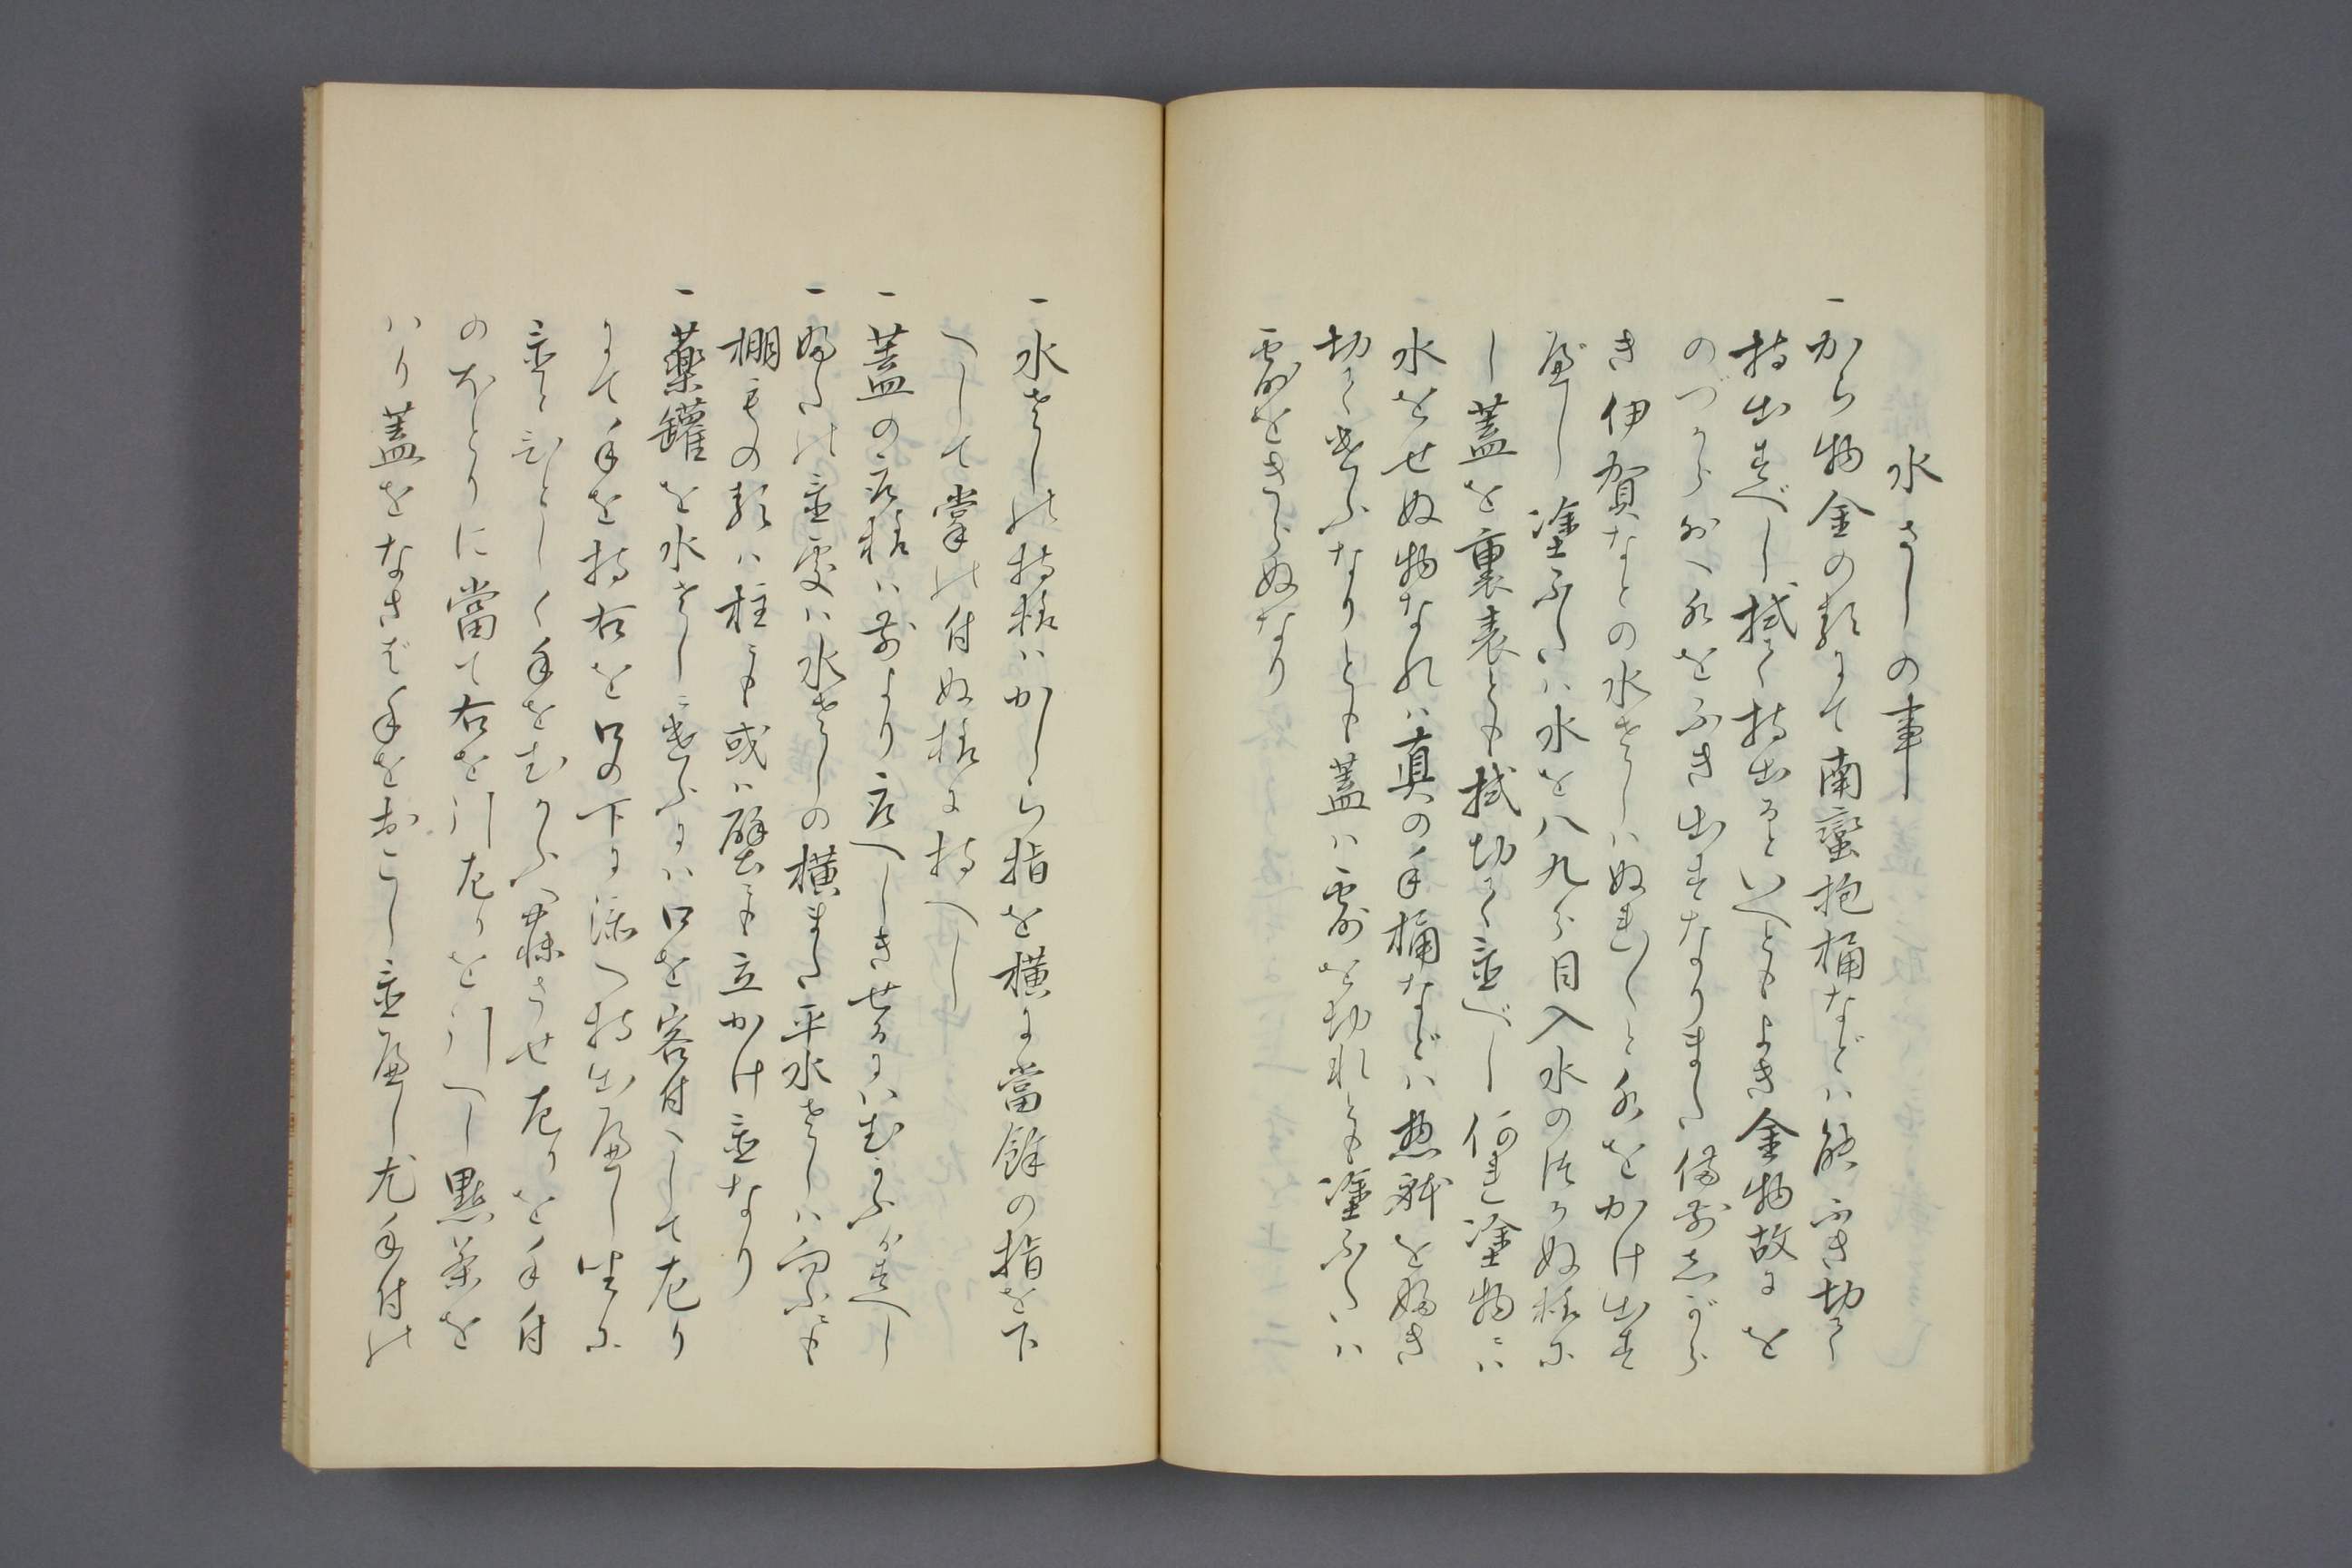 水さしの事
一から物金の類にて南蛮抱桶などハ能ふき切て
持出すべし拭て持出るといへともよき金物故にを
のづから外へ水をふき出すなりまた備前しがら
き伊賀などの水さしハぬれ〳〵と水をかけ出す
べし塗ふたハ水を八九分目入水の付かぬ様に
し蓋を裏表とも拭切て置べし何れ塗物にハ
水をよせぬ物なれハ真の手桶などハ惣躰を好き
切て嫌ふなりとも蓋ハ露を切れとも塗ふたハ
露をきらぬなり
一水さしの持様ハかしら指を横に當餘の指を下
へして掌の付ぬ様に持へし
一蓋の取様ハ前より取へしきせるにハむかふかすへし
一ふたの置處ハ水さしの横また平水さしハ向ふにも
棚ものの類ハ柱にも或ハ壁にも立かけ置なり
一薬罐を水さしに遣ふにハ口を客付へして左り
にて手を持右を口の下に添へ持出べし坐に
置とひとしく手をむかふへ寐させ左りを手付
のほとりに當て右を引左りを引へし點茶を
ハり蓋をなさば手をおこし置べし尤手付の